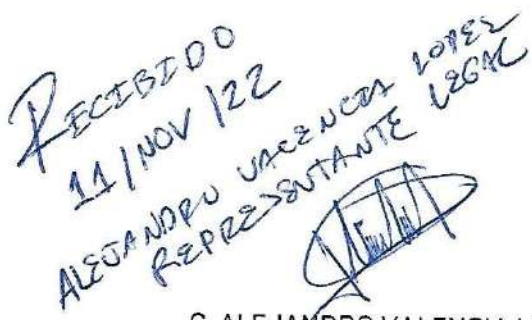 RECIBIDO
11/NOV/22
ALEJANDRO VALENCIA LOPEZ
REPRESENTANTE LEGAL
C. ALEJANDRO VALENCIA